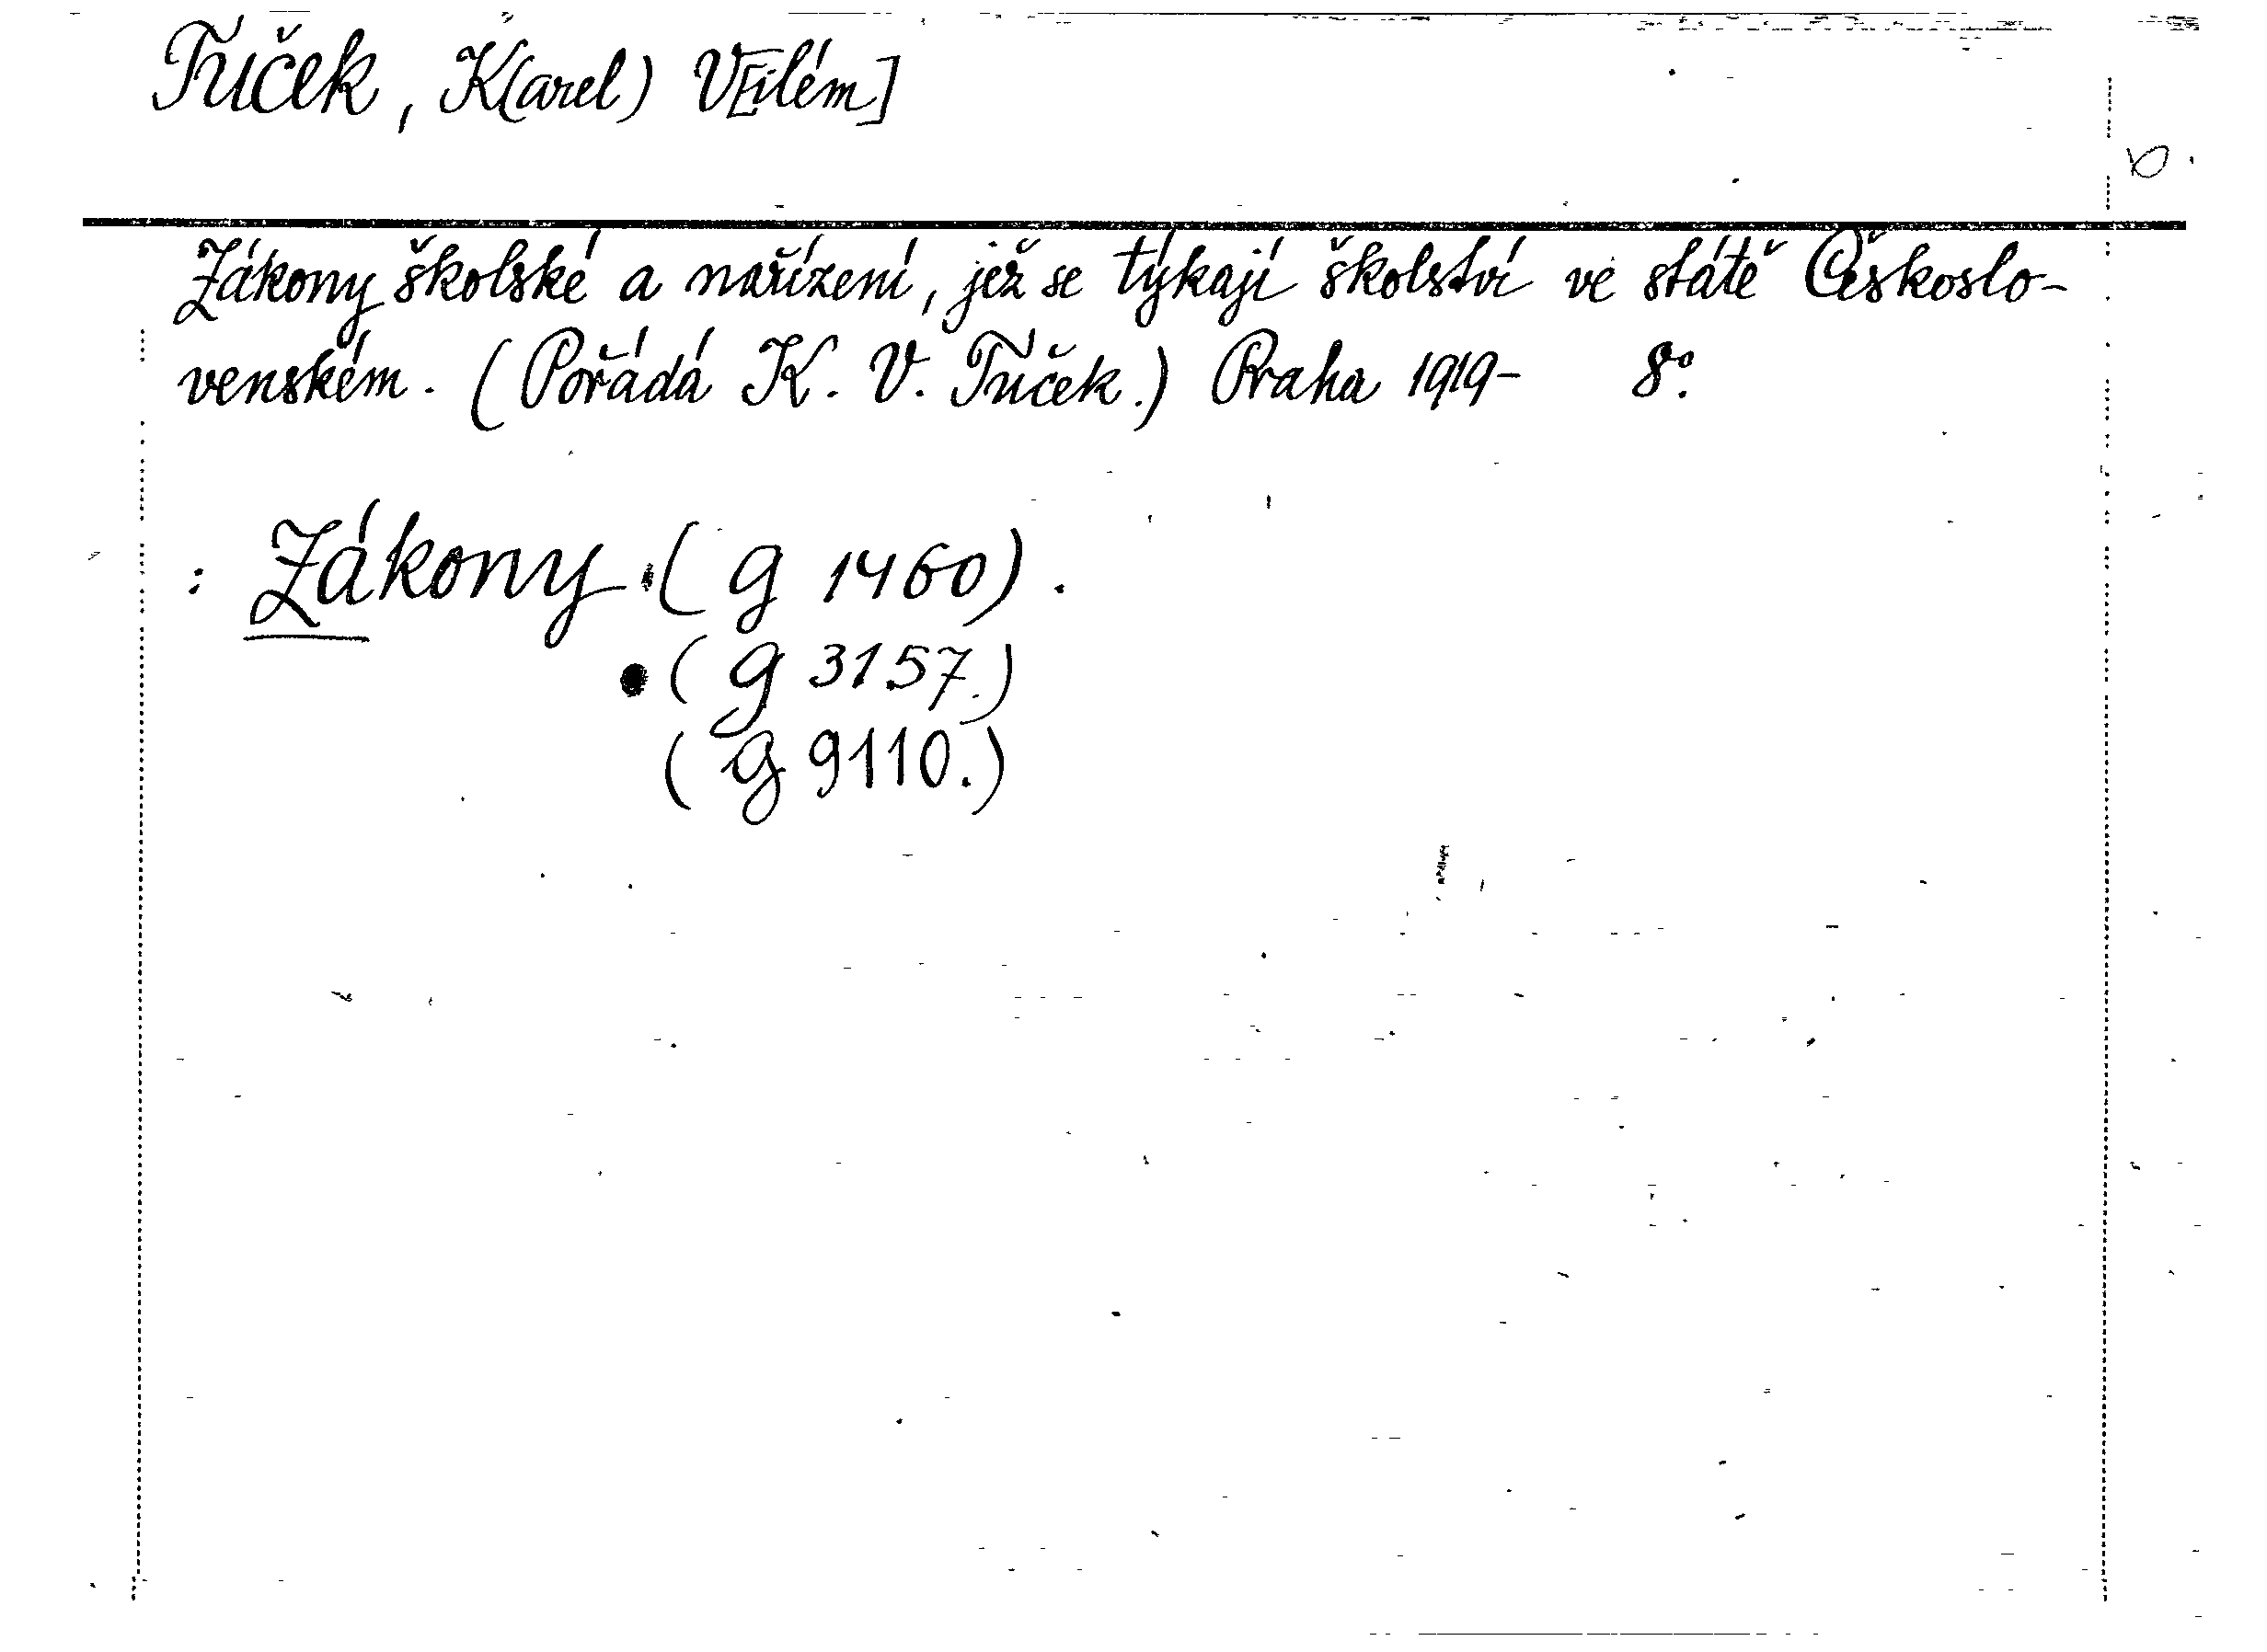 Tuček, K(arel) V[ilém]
Zákony školské a nařízení, jež se týkají školství ve státě Českoslo-
venském. (Pořádá K. V. Tuček.) Praha 1919- 8°.
: Zákony (g 1460).
(g 3157.)
(g 9110.)